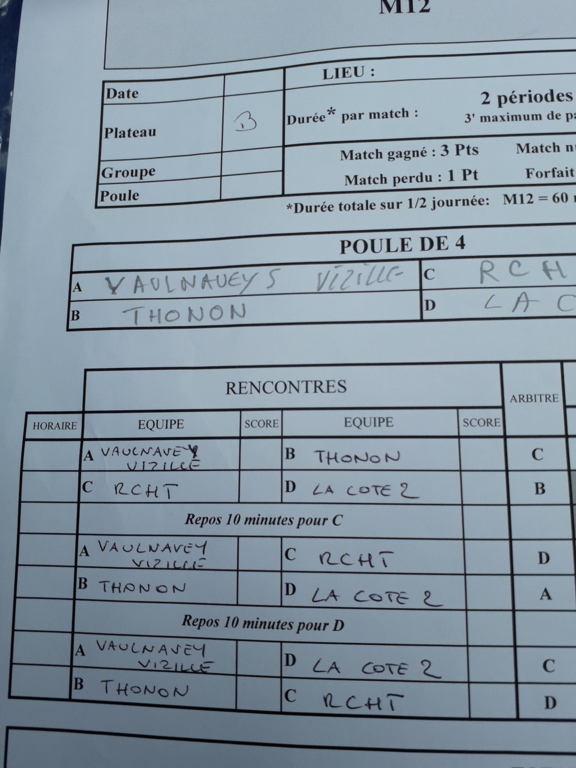 M12
LIEU :
Date
Plateau B
Durée* par match : 2 périodes
3' maximum de
Groupe
Match gagné : 3 Pts Match
Poule
Match perdu : 1 Pt Forfait
*Durée totale sur 1/2 journée: M12 = 60
POULE DE 4
A VAULNAVEYS VIZILLE C RCH
B THONON D LA C
RENCONTRES ARBITRE
HORAIRE EQUIPE SCORE EQUIPE SCORE
A VAULNAVEY B THONON C
VIZILLE
C RCHT D LA COTE 2 B
Repos 10 minutes pour C
A VAULNAVEY C RCHT D
VIZILLE
B THONON D LA COTE 2 A
Repos 10 minutes pour D
A VAULNAVEY D LA COTE 2 C
VIZILLE
B THONON C RCHT D